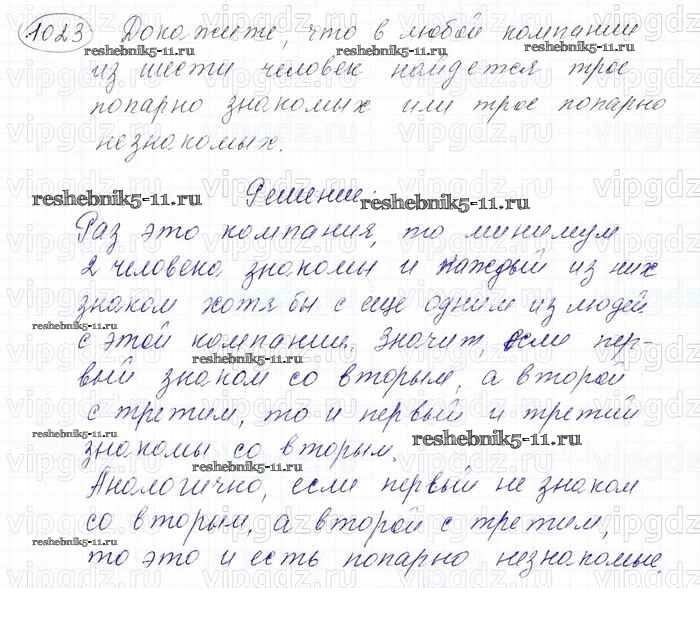 1023 Докажите, что в любой компании
из шести человек найдется трое
попарно знакомых или трое попарно
незнакомых.
Решение:
Раз это компания, то минимум
2 человека знакомы и каждый из них
знаком хотя бы с еще одним из людей
с этой компании. Значит, если пер-
вый знаком со вторым, а второй
с третим, то и первый и третий
знакомы со вторым.
Анологично, если первый не знаком
со вторым, а второй с третим,
то это и есть попарно незнакомые.
reshebnik5-11.ru
reshebnik5-11.ru
reshebnik5-11.ru
reshebnik5-11.ru
reshebnik5-11.ru
reshebnik5-11.ru
reshebnik5-11.ru
reshebnik5-11.ru
reshebnik5-11.ru
reshebnik5-11.ru
vipgdz.ru